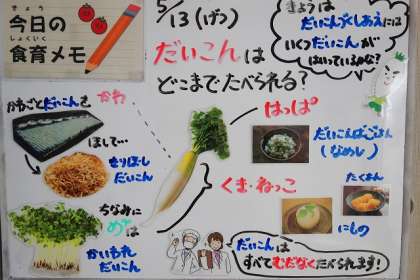 きょう
今日の
しょくいく
食育メモ
5/13(げつ)
だいこんは
どこまでたべられる?
きょうは
だいこんづくしあえには
いくつだいこんが
はいっているかな?
かわごとだいこんを
かわ
ほして…
きりぼし
だいこん
ちなみに
めは
かいわれ
だいこん
はっぱ
だいこんばごはん
(なめし)
くき・ねっこ
たくあん
にもの
だいこんは
すべてむだなくたべられます!